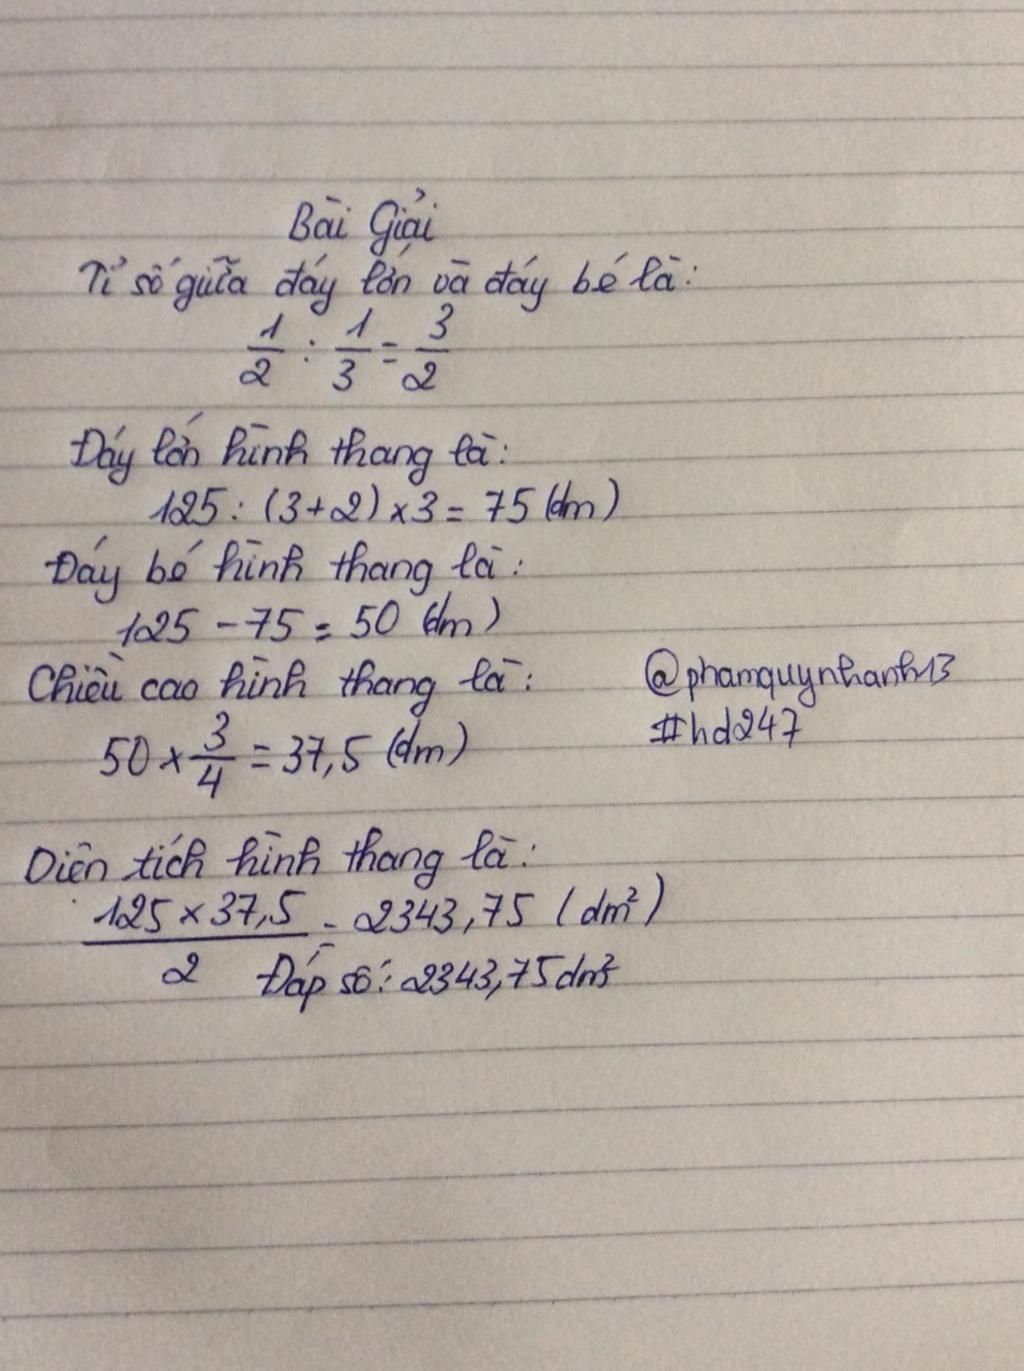 Bài Giải
Tỉ số giữa đáy lớn và đáy bé là:
1/2 : 1/3 = 3/2
Đáy lớn hình thang là:
125 : (3+2) x 3 = 75 (dm)
Đáy bé hình thang là:
125 - 75 = 50 (dm)
Chiều cao hình thang là:
@phamquynhanh13
#hd247
50 x 3/4 = 37,5 (dm)
Diên tích hình thang là:
125 x 37,5 / 2 = 2343,75 (dm²)
Đáp số: 2343,75 dm²